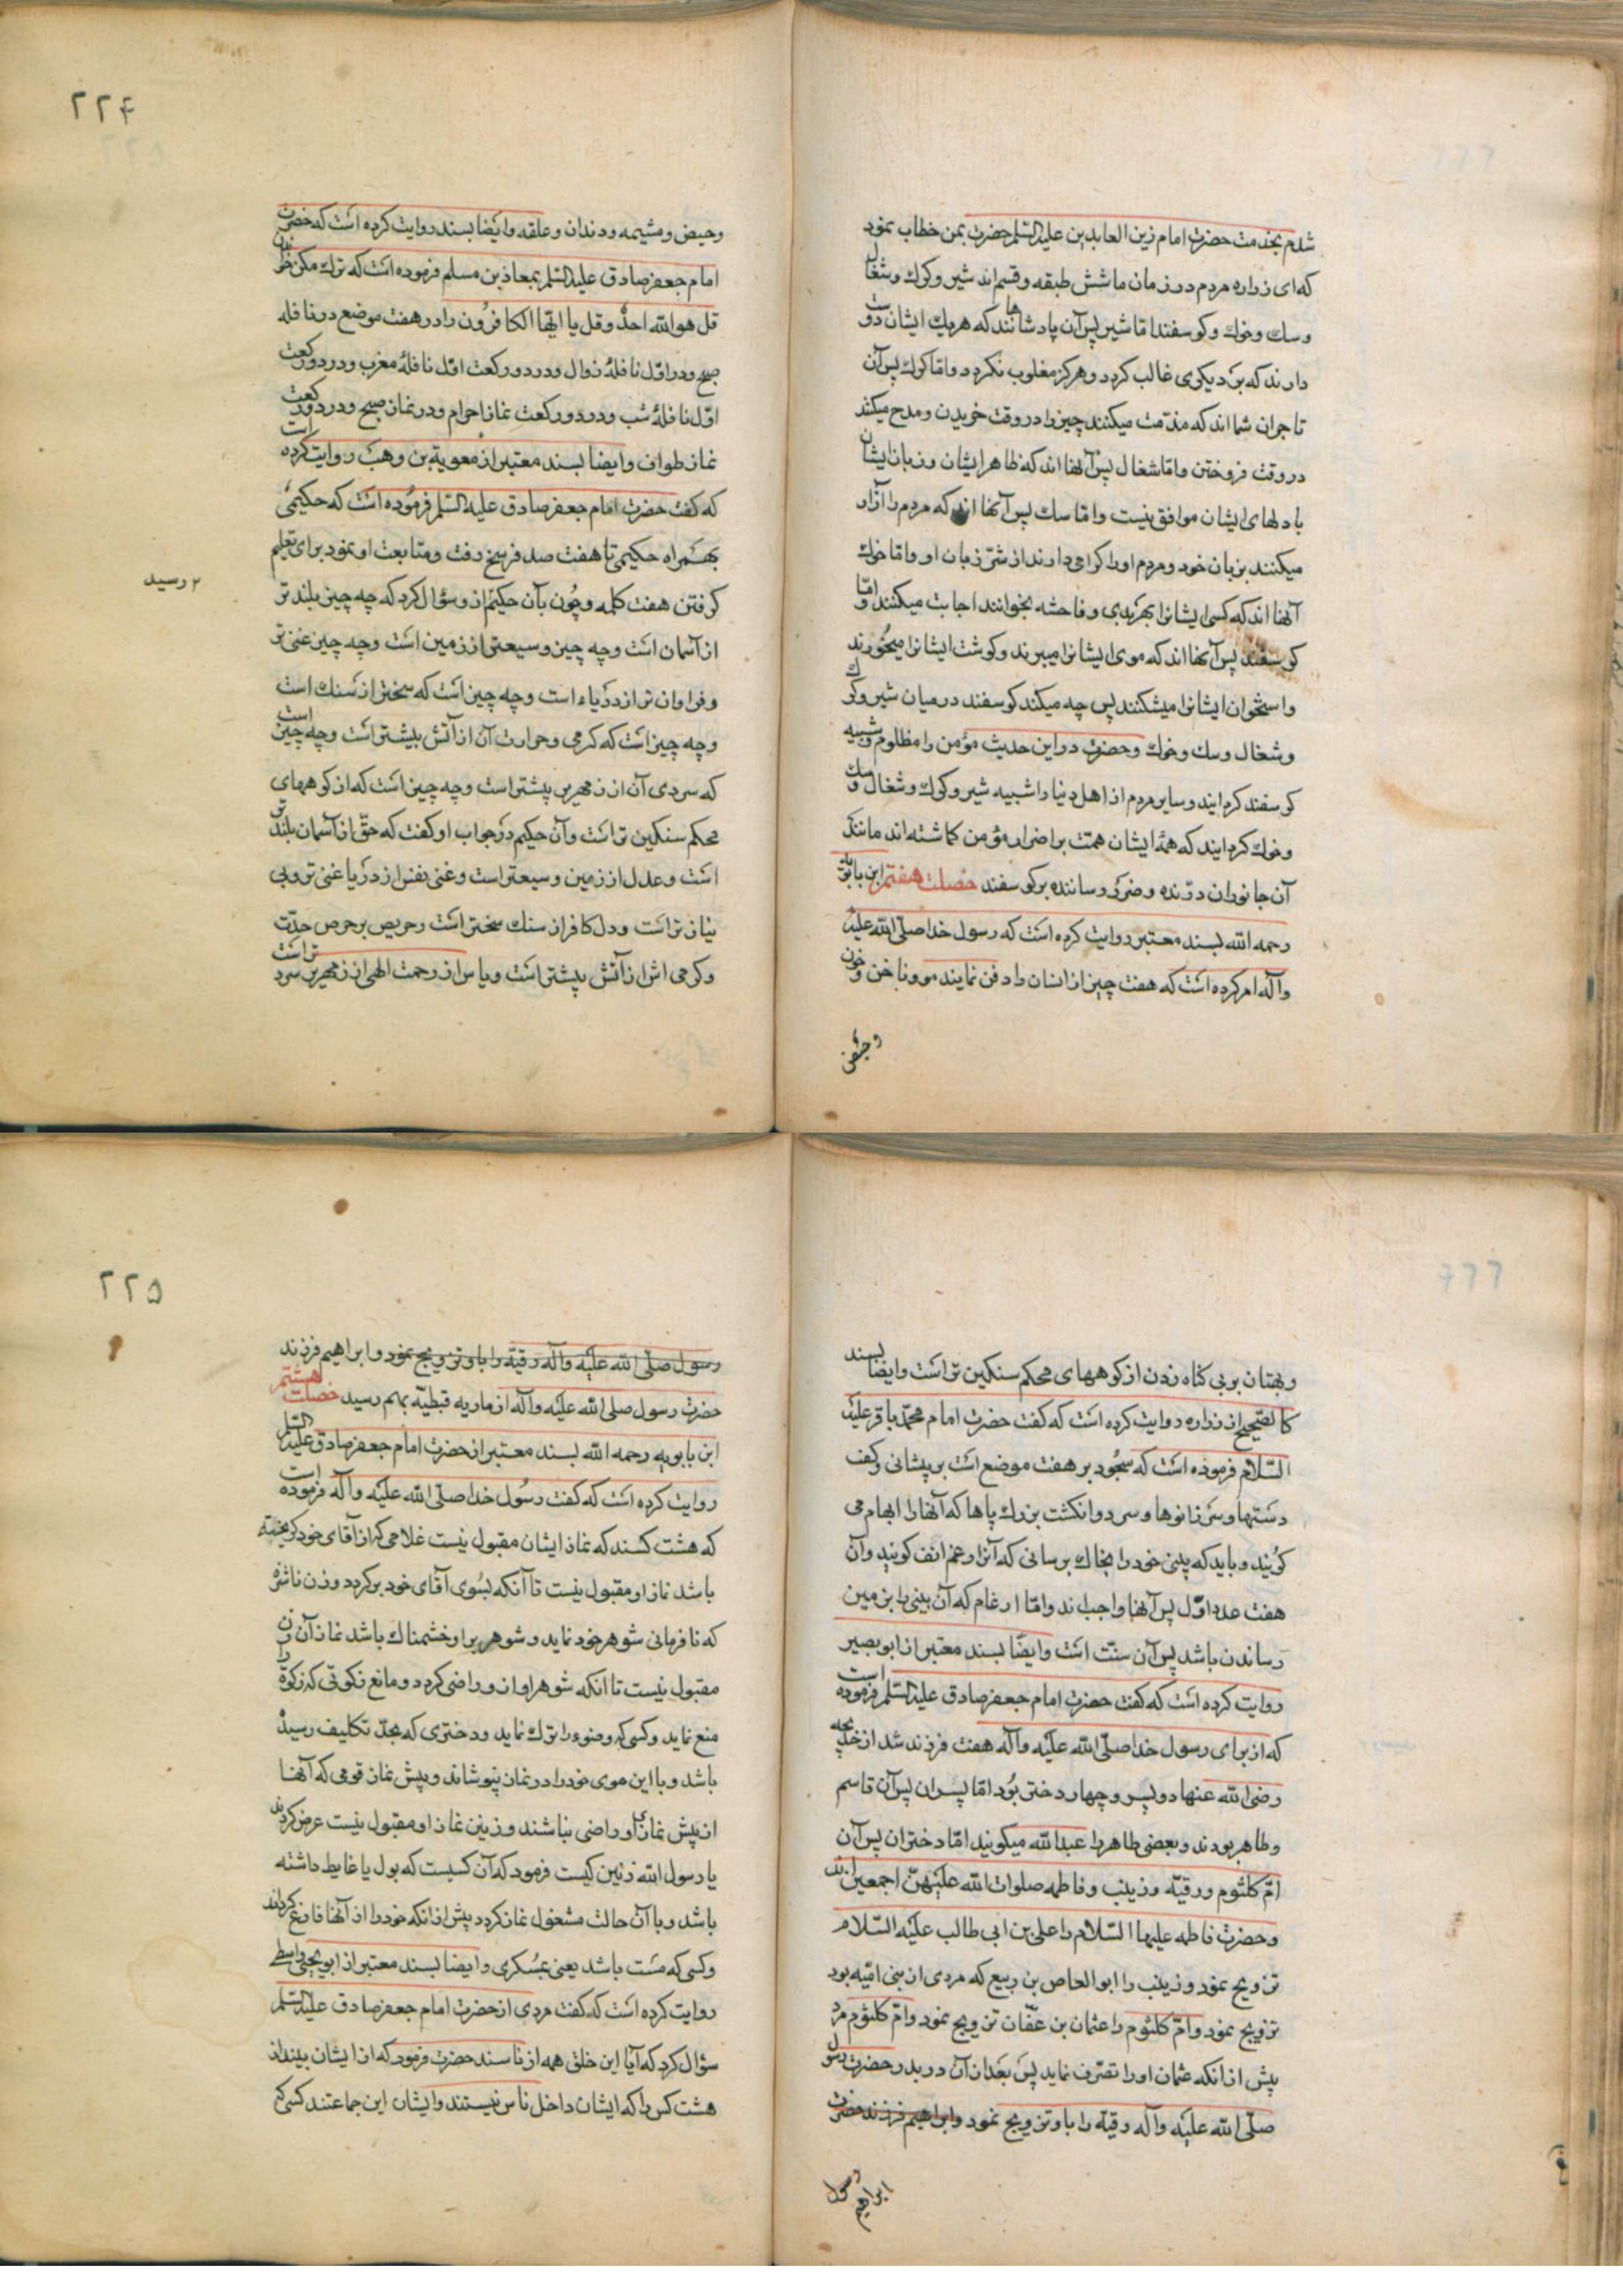 شدم بخدمت حضرت امام زین العابدین علیه السلم حضرت بمن خطاب نمود
که ای زراره مردم در زمان ما شش طبقه و قسم اند شیر و کرك و شغال
و سك و خوك و کوسفند اما شیر پس آن پادشاهانند که هر یك ایشان دوست
دارند که بر دیکری غالب کردد و هرکز مغلوب نکردد و اما کرك پس آن
تاجران شما اند که مذمت میکنند چیز را در وقت خریدن و مدح میکنند
در وقت فروختن و اما شغال پس آنها اند که ظاهر ایشان و زبان ایشان
با دلهای ایشان موافق نیست و اما سك پس آنها اند که مردم را آزار
میکنند بزبان خود و مردم او را کرامی دارند از شر زبان او و اما خوك
آنها اند که کسی ایشانرا بهر بدی و فاحشه بخوانند اجابت میکنند و اما
کوسفند پس آنها اند که موی ایشانرا میبرند و کوشت ایشانرا میخورند
و استخوان ایشانرا میشکنند پس چه میکند کوسفند در میان شیر و کرك
و شغال و سك و خوك و حضرت در این حدیث مؤمن را مظلوم و شبیه
کوسفند کردانید و سایر مردم از اهل دنیا را شبیه شیر و کرك و شغال و سك
و خوك کردانید که همهٔ ایشان همت بر اضرار مؤمن کماشته اند مانند
آن جانوران درنده و ضرر رساننده بر کوسفند خصلت هفتم ابن بابویه
رحمه الله بسند معتبر روایت کرده است که رسول خدا صلی الله علیه
و آله امر کرده است که هفت چیز از انسان را دفن نمایند مو و ناخن و خون
و حیض
۲۲۴
و حیض و مشیمه و دندان و علقه و ایضا بسند روایت کرده است که حضرت
امام جعفر صادق علیه السلم بمعاذ بن مسلم فرموده است که ترك مکن خواندن
قل هو الله احد و قل یا ایها الکافرون را در هفت موضع در نافله
صبح و در اول نافلهٔ زوال و در دو رکعت اول نافلهٔ مغرب و در دو رکعت
اول نافلهٔ شب و در دو رکعت نماز احرام و در نماز صبح و در دو رکعت
نماز طواف و ایضا بسند معتبر از معویة بن وهب روایت کرده است
که کفت حضرت امام جعفر صادق علیه السلم فرموده است که حکیمی
بهمراه حکیمی تا هفت صد فرسخ رفت و متابعت او نمود برای تعلیم
کرفتن هفت کلمه و چون بآن حکیم از و سؤال کرد که چه چیز بلند تر
از آسمان است و چه چیز وسیعتر از زمین است و چه چیز غنی تر
و فراوان تر از دریاء است و چه چیز است که سختر از سنك است
و چه چیز است که کرمی و حرارت آن از آتش بیشتر است و چه چیز است
که سردی آن از زمهریر بیشتر است و چه چیز است که از کوههای
محکم سنکین تر است و آن حکیم در جواب او کفت که حق از آسمان بلند تر
است و عدل از زمین وسیعتر است و غنی نفس از دریا غنی تر و بی
نیاز تر است و دل کافر از سنك سختر است و حریص بر حرص حدت
و کرمی اش از آتش بیشتر است و یاس از رحمت الهی از زمهریر سرد تر است
۲ رسید
و بهتان بر بی کناه زدن از کوههای محکم سنکین تر است و ایضا بسند
کالصحیح از زراره روایت کرده است که کفت حضرت امام محمد باقر علیه
السلام فرموده است که سجود بر هفت موضع است بر پیشانی و کف
دستها و سر زانوها و سر دو انکشت بزرك پاها که آنها را ابهام می
کویند و باید که بینی خود را بخاك برسانی که آنرا رغم انف کویند و آن
هفت عدد اول پس آنها واجب اند و اما ارغام که آن بینی را بزمین
رساندن باشد پس آن سنت است و ایضا بسند معتبر از ابو بصیر
روایت کرده است که کفت حضرت امام جعفر صادق علیه السلم فرموده است
که از برای رسول خدا صلی الله علیه و آله هفت فرزند شد از خدیجه
رضی الله عنها دو پسر و چهار دختر بود اما پسران پس آن قاسم
و طاهر بودند و بعضی طاهر را عبدالله میکویند اما دختران پس آن
ام کلثوم و رقیه و زینب و فاطمه صلوات الله علیهن اجمعین اند
و حضرت فاطمه علیها السلام را علی بن ابی طالب علیه السلام
تزویج نمود و زینب را ابو العاص بن ربیع که مردی از بنی امیه بود
تزویج نمود و ام کلثوم را عثمان بن عفان تزویج نمود و ام کلثوم مرد
پیش از انکه عثمان او را تصرف نماید پس بعد از آن در بدر حضرت رسول
صلی الله علیه و آله رقیه را باو تزویج نمود و ابراهیم فرزند حضرت
رسول
ابراهیم
۲۲۵
رسول صلی الله علیه و آله رقیه را باو تزویج نمود و ابراهیم فرزند
حضرت رسول صلی الله علیه و آله از ماریه قبطیه بهم رسید خصلت هشتم
ابن بابویه رحمه الله بسند معتبر از حضرت امام جعفر صادق علیه السلم
روایت کرده است که کفت رسول خدا صلی الله علیه و آله فرموده است
که هشت کسند که نماز ایشان مقبول نیست غلامی که از آقای خود کریخته
باشد نماز او مقبول نیست تا آنکه بسوی آقای خود برکردد و زن ناشزه
که نافرمانی شوهر خود نماید و شوهر بر او خشمناك باشد نماز آن زن
مقبول نیست تا انکه شوهر او از و راضی کردد و مانع زکوتی که زکوة را
منع نماید و کسی که وضوء را ترك نماید و دختری که بحد تکلیف رسیده
باشد و با این موی خود را در نماز نپوشاند و پیش نماز قومی که آنها
از پیش نمازی او راضی نباشند و زنین نماز او مقبول نیست عرض کردند
یا رسول الله زنین کیست فرمود که آن کسیست که بول یا غایط داشته
باشد و با آن حالت مشغول نماز کردد پیش از انکه خود را از آنها فارغ کرداند
و کسی که مست باشد یعنی بمسکری و ایضا بسند معتبر از ابو یحیی واسطی
روایت کرده است که کفت مردی از حضرت امام جعفر صادق علیه السلم
سؤال کرد که آیا این خلق همه از ناسند حضرت فرمود که از ایشان بینداز
هشت کس را که ایشان داخل ناس نیستند و ایشان این جماعتند کسی که